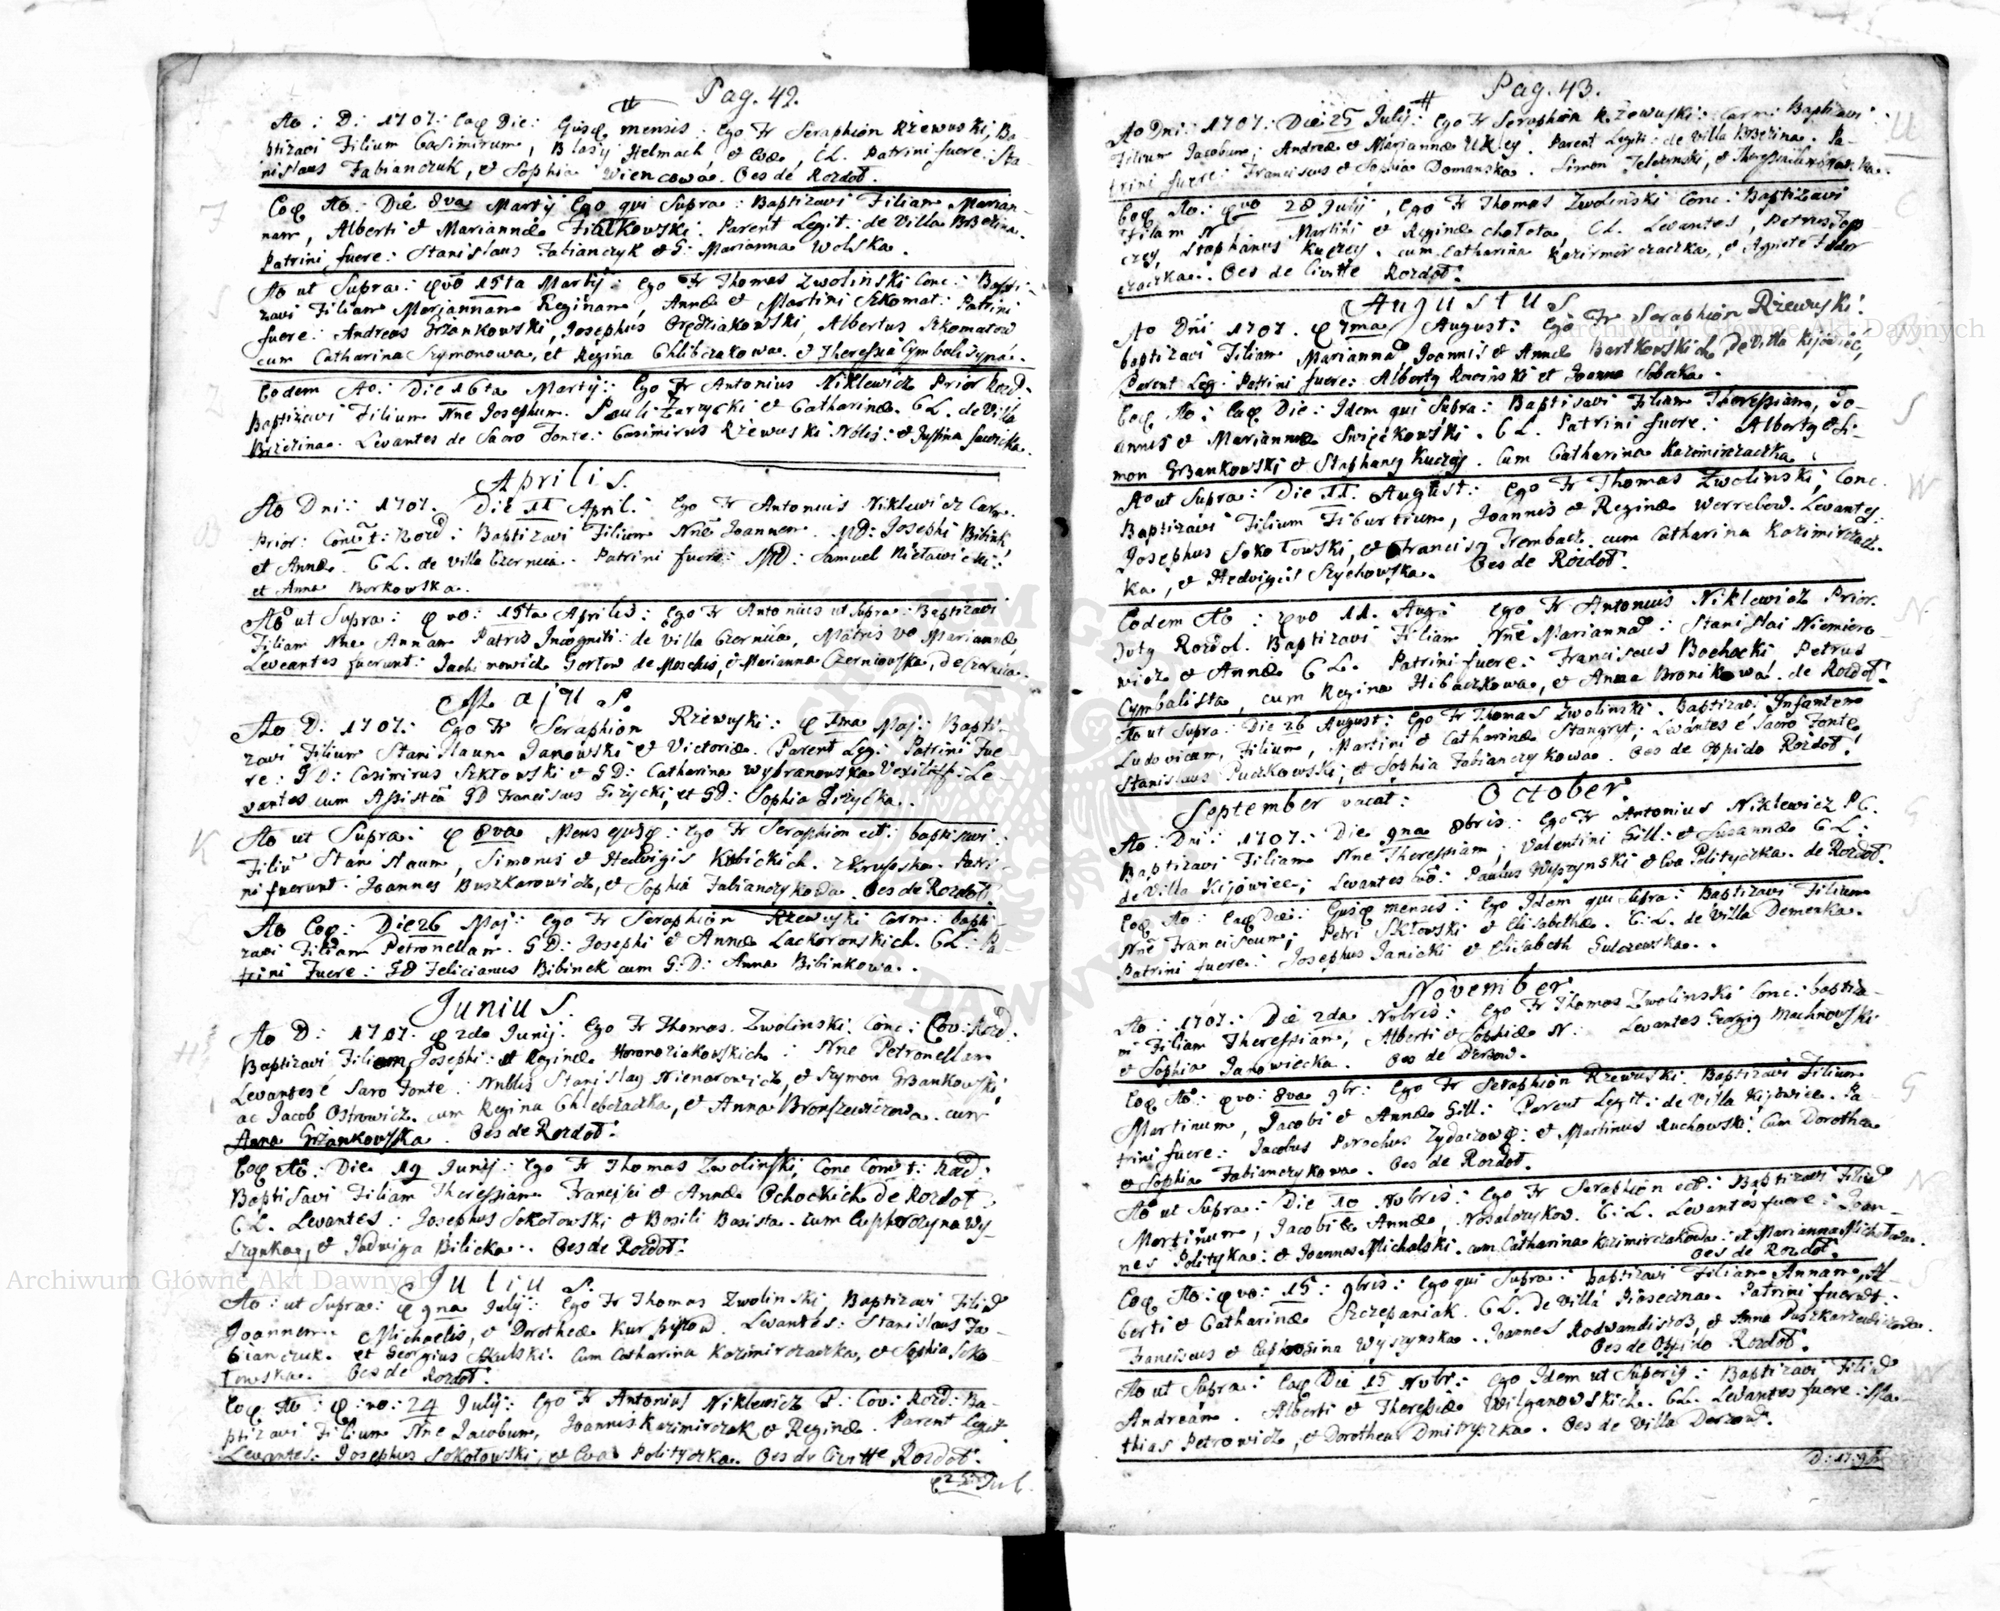 Pag. 42.
Ao: D: 1707: Eaq Die: Ejusq mensis: Ego Fr Seraphion Rzewuski, Ba-
ptizavi Filium Casimirum, Blasij Helmach, et Evae, CL. Patrini fuere: Sta-
nislaus Fabianczuk, et Sophia Wiencowa. Oes de Rozdoł.
Eoq Ao: Die 8va Martij Ego qui Supra: Baptizavi Filiam Marian-
nam, Alberti et Mariannae Fiałkowski. Parent Legit: de Villa Brzezina.
Patrini fuere: Stanislaus Fabianczyk et G: Marianna Wolska.
Ao ut Supra: qvo 15ta Martij: Ego Fr Thomas Zwolinski Conc: Bapti-
zavi Filiam Mariannam Reginam, Annae et Martini Szkomat: Patrini
fuere: Andreas Grzankowski, Josephus Orędziakowski, Albertus Szkomatow
cum Catharina Szymonowa, et Regina Chlibczakowa. et Theressia Cymbalistyna.
Eodem Ao: Die 16ta Martij: Ego Fr Antonius Niklewicz Prior Rozd:
Baptizavi Filium Nne Josephum. Pauli Zarzycki et Catharinae. C L. de Villa
Brzezina. Levantes de Sacro Fonte: Casimirus Rzewuski Nobis: et Justina
Aprilis.
Ao Dni: 1707. Die 11 April: Ego Fr Antonius Niklewicz Carm.
Prior: Convt: Rozd: Baptizavi Filium Nne Joannem. MD: Josephi Bibink
et Annae. C L. de villa Czernica. Patrini fuere: MD: Samuel
et Anna Borkowska.
Ao ut Supra: qvo: 15ta Aprilis: Ego Fr Antonius ut Supra: Baptizavi
Filiam Nne Annam Patris Incogniti: de Villa Czernica, Matris vo Mariannae,
Levantes fuerunt: Jachimowicz de et Marianna Czerniowska, de Czernica.
Majus.
Ao D: 1707: Ego Fr Seraphion Rzewuski: q Ima Maj: Bapti-
zavi Filium Stanislaum Janowski et Victoriae. Parent Leg: Patrini fue
re: GD: Casimirus Szkłowski et GD: Catharina Wybranowska Le-
vantes cum Assistea GD Franciscus Giżycki, et GD: Sophia Giżycka.
Ao ut Supra: q 8va Mens ejusq: Ego Fr Seraphion ect: baptisavi:
Filiu Stanislaum, Simonis et Hedvigis Kubickich. Patri-
ni fuerunt: Joannes Buszkarowicz, et Sophia Fabianczykowa. Oes de Rozdoł:
Ao Eoq: Die 26 Maj: Ego Fr Seraphion Rzewuski Carm: bapti-
zavi Filiam Petronellam. GD: Josephi et Annae Lackoronskich. CL: Pa-
trini Fuere: GD Felicianus Bibinek cum G:D: Anna Bibinkowa.
Junius.
Ao D: 1707. q 2do Junij: Ego Fr Thomas Zwolinski Conc: Cov: Rozd:
Baptizavi Filiam Josephi: et Reginae: Nne Petronellam
Levantes e Saro Fonte: Nnblis Stanislaus, et Szymon Grzankowski,
ac Jacob Ostrowicz. cum Regina Chlebczaczka, et Anna Bronszewiczowa. cum
Anna Grzankowska. Oes de Rozdoł:
Eoq Ao: Die 19 Junij: Ego Fr Thomas Zwolinski, Conc Convt: Rozd:
Baptisavi Filiam Theressiam Francisci et Annae Ochockich de Rozdoł.
C.L. Levantes: Josephus Sokołowski et Basili Basista. cum Euphrozyna Wy-
szynka, et Jadwiga Bilicka. Oes de Rozdoł:
Julius.
Ao: ut Supra: q 9na July: Ego Fr Thomas Zwolinski, Baptizavi Filiu
Joannem. Michaelis, et Dorotheae. Levantes: Stanislaus Fa-
bianczuk. et Georgius Skulski. cum Catharina Kazimirczaczka, et Sophia Soko
łowska. Oes de Rozdoł:
Eoq Ao: q:vo: 24 July: Ego Fr Antonius Niklewicz P: Cov: Rozd: Ba-
ptizavi Filium Nne Jacobum, Joannis Kazimirczak et Reginae. Parent Legit.
Levantes: Josephus Sokołowski, et Eva Polityczka. Oes de Civitte Rozdoł:
q 25: Jul.
Pag. 43.
Ao Dni: 1707: Die 25 July: Ego Fr Seraphion Rzewuski: Carm: Baptizavi
Filium Jacobum, Andreae et Mariannae Ukley. Parent Legiti: de Villa Brzezina. Pa-
trini fuere: Franciscus et Sophia Domanska. Simon et
Eoq Ao: qvo 28 July, Ego Fr Thomas Zwolinski Conc: Baptizavi
Filiam N Martini et Reginae CL. Levantes, Petrus
czey, Stephanus Kuczey. cum Catharina Kazimirczaczka, et Agnete Fedor
czaczka. Oes de Civitte Rozdoł:
Augustus
Ao Dni 1707. q 7ma August: Ego Fr Seraphion Rzewuski:
baptizavi Filiam Marianna Joannis et Annae Bartkowski de Villa Kijowiec,
Parent Leg: Patrini fuere: Alberty et Joanna Sobecka.
Eoq Ao: Eaq Die: Idem qui Supra: Baptisavi Filiam Theressiam, Jo-
annis et Mariannae Swięckowski. C L. Patrini fuere: Alberty et Si-
mon Grzankowski et Stephany Kuczey. Cum Catharina Kazimirczaczka.
Ao ut Supra: Die 11. August: Ego Fr Thomas Zwolinski, Conc.
Baptizavi Filium Tiburtium, Joannis et Reginae Werrebow. Levantes:
Josephus Sokołowski, et Francisq Trembacz. cum Catharina Kazimirczacz-
ka, et Hedvigis Szychowska. Oes de Rozdoł:
Eodem Ao: qvo 11. Aug: Ego Fr Antonius Niklewicz Prior.
Rozdol. Baptizavi Filiam Nne Marianna: Stanislai Niemiro-
wicz et Annae C L. Patrini fuere: Franciscus Bochocki Petrus
Cymbalista, cum Regina Hibaczkowa, et Anna Bronikowa. de Rozdoł:
Ao ut Supra: Die 26 August: Ego Fr Thomas Zwolinski. Baptizavi Infantem
Ludovicum, Filium, Martini et Catharinae Stangryt, Levantes e Sacro Fonte,
Stanislaus Puczkowski, et Sophia Fabianczykowa. Oes de Oppido Rozdoł:
September vacat: October.
Ao: Dni: 1707: Die 9na 8bris: Ego Fr Antonius Niklewicz P C.
Baptizavi Filiam Nne Theressiam, Valentini Gill: et Susannae C L:
de Villa Kijowiec, Levantes: Paulus Wyszynski et Eva Polityczka. de Rozdoł.
Eoq Ao: Eaq Diei: Ejusq mensis: Ego Idem qui Supra: Baptizavi Filium
Nne Franciscum, Petri Szkłowski et Elisabethae. C:L. de Villa Demenka.
Patrini fuere: Josephus Janicki et Elisabeth Gulczewska.
November
Ao: 1707: Die 2da Nobris: Ego Fr Thomas Zwolinski Conc: baptiza-
vi Filiam Theressiam, Alberti et Sophiae N: Levantes Georgig Machnowski
et Sophia Janowiecka. Oes de Derzow.
Eoq Ao: qvo: 8va 9br: Ego Fr Seraphion Rzewuski Baptizavi Filium
Martinum, Jacobi et Annae Gill: Parent Legit: de Villa Kijowiec. Pa-
trini fuere: Jacobus Parochus et Martinus Ruchowski cum Dorothea
et Sophia Fabianczykowa. Oes de Rozdoł.
Ao ut Supra: Die 10 Nobris: Ego Fr Seraphion ect: Baptizavi Filiu
Martinum, Jacobi & Annae, Nosalczykow. C:L. Levantes fuere: Joan-
nes Polityka: et Joannes Michalski. cum Catharina Kazimirczakowa: et Marianna
Oes de Rozdoł.
Eoq Ao: qvo: 15: 9bris: Ego qui Supra: baptizavi Filiam Annam, Al-
berti et Catharinae Szczepaniak. C L. de Villa Piaseczna. Patrini fuerut:
Franciscus et Euphrosina Wyszynska. Joannes et Anna
Oes de Oppido Rozdoł:
Ao ut Supra: Eaq Die 15 Nobr: Ego Idem ut Superig: Baptizavi Filiu
Andream. Alberti et Theressiae Wilganowskich. CL. Levantes fuere: Ma-
thias Petrowicz, et Dorothea Dmitryszka. Oes de Villa Derzow.
D: 17: 9b
Archiwum Główne Akt Dawnych
Archiwum Główne Akt Dawnych